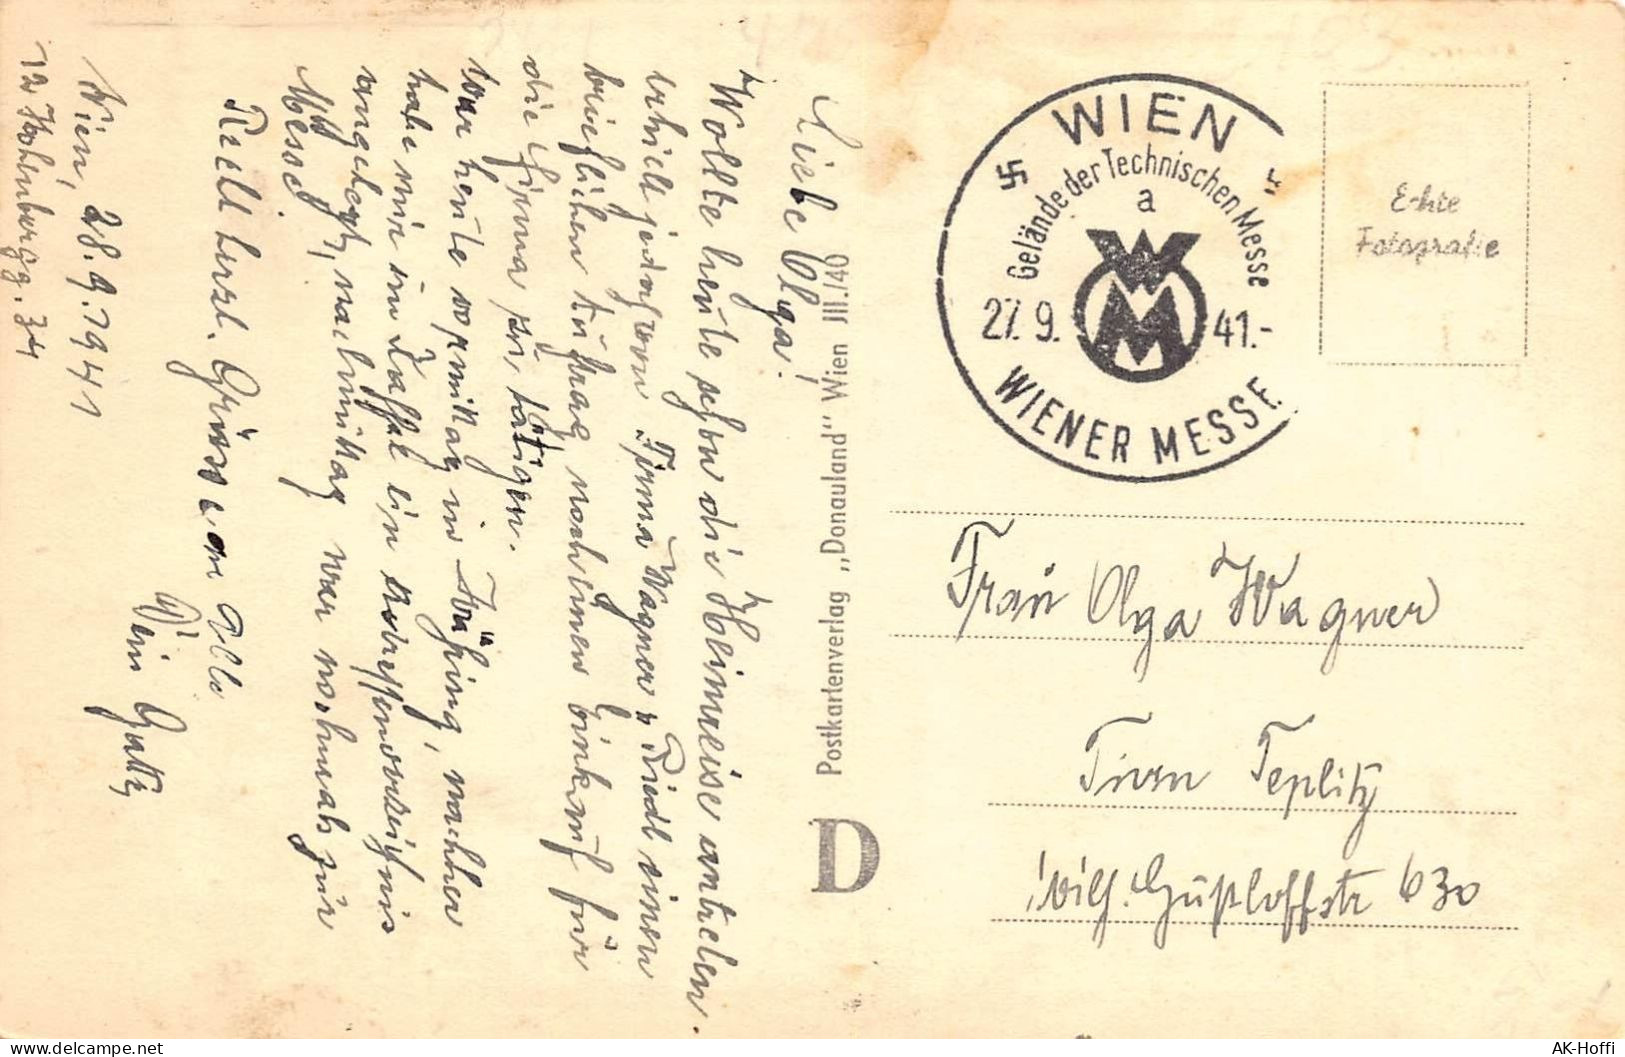 Wien, 28.9.1941
12 Hohenbergg. 34
Liebe Olga!
Wollte heute schon die Heimreise antreten.
erhielt jedoch von Firma Wagner u Riedl einen
brieflichen Auftrag, noch einen Einkauf für
die Firma zu tätigen.
War heute vormittag in Währing, nachher
habe mir im Kaffee ein Adressenverzeichnis
angelegt, nachmittag war nochmals zur
Messe.
Recht herzl. Grüsse an Alle
Dein Gatte
Postkartenverlag „Donauland" Wien III./40
D
WIEN
Gelände der Technischen Messe
a
WM
27. 9. 41.-
WIENER MESSE
Echte
Fotografie
Frau Olga Wagner
Turn Teplitz
Wilh. Gustloffstr 630
AK-Hoffi